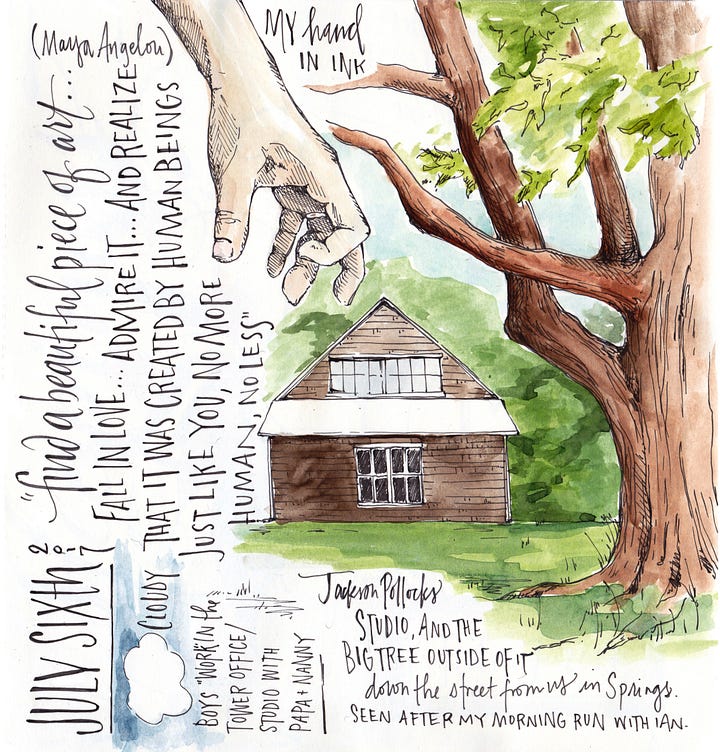 (Maya Angelou)
"find a beautiful piece of art...
FALL IN LOVE... ADMIRE IT... AND REALIZE
THAT IT WAS CREATED BY HUMAN BEINGS
JUST LIKE YOU, NO MORE
HUMAN, NO LESS"
MY hand
IN INK
JULY SIXTH 2017
CLOUDY
BOYS "WORK IN the
TOWER OFFICE/
STUDIO WITH
PAPA + NANNY
Jackson Pollocks
STUDIO, AND THE
BIG TREE OUTSIDE OF IT
down the street from us in Springs.
SEEN AFTER MY MORNING RUN WITH IAN.